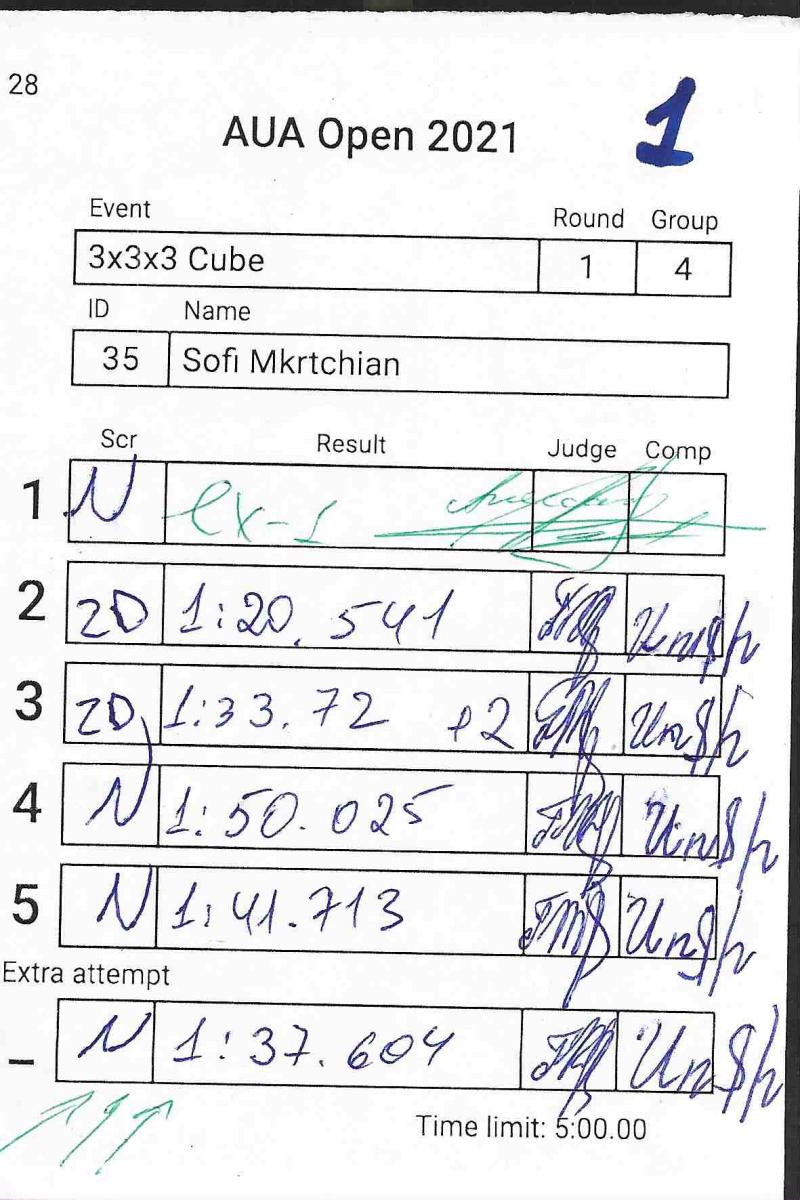 28
AUA Open 2021 1
Event Round Group
3x3x3 Cube 1 4
ID Name
35 Sofi Mkrtchian
Scr Result Judge Comp
1 N ex-1
2 1:20.541
3 1:33.72 +2
4 N 1:50.025
5 N 1:41.713
Extra attempt
_ N 1:37.604
Time limit: 5:00.00